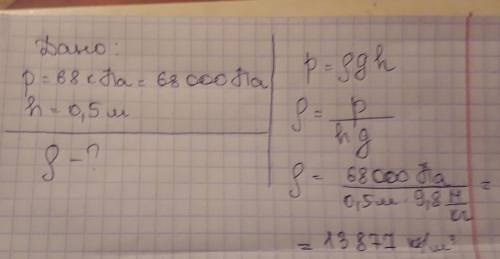 Дано:
p = 68 кПа = 68 000 Па
h = 0,5 м
ρ - ?
p = ρgh
ρ = p / hg
ρ = 68 000 Па / 0,5 м 9,8 Н/кг =
= 13 877 кг/м³